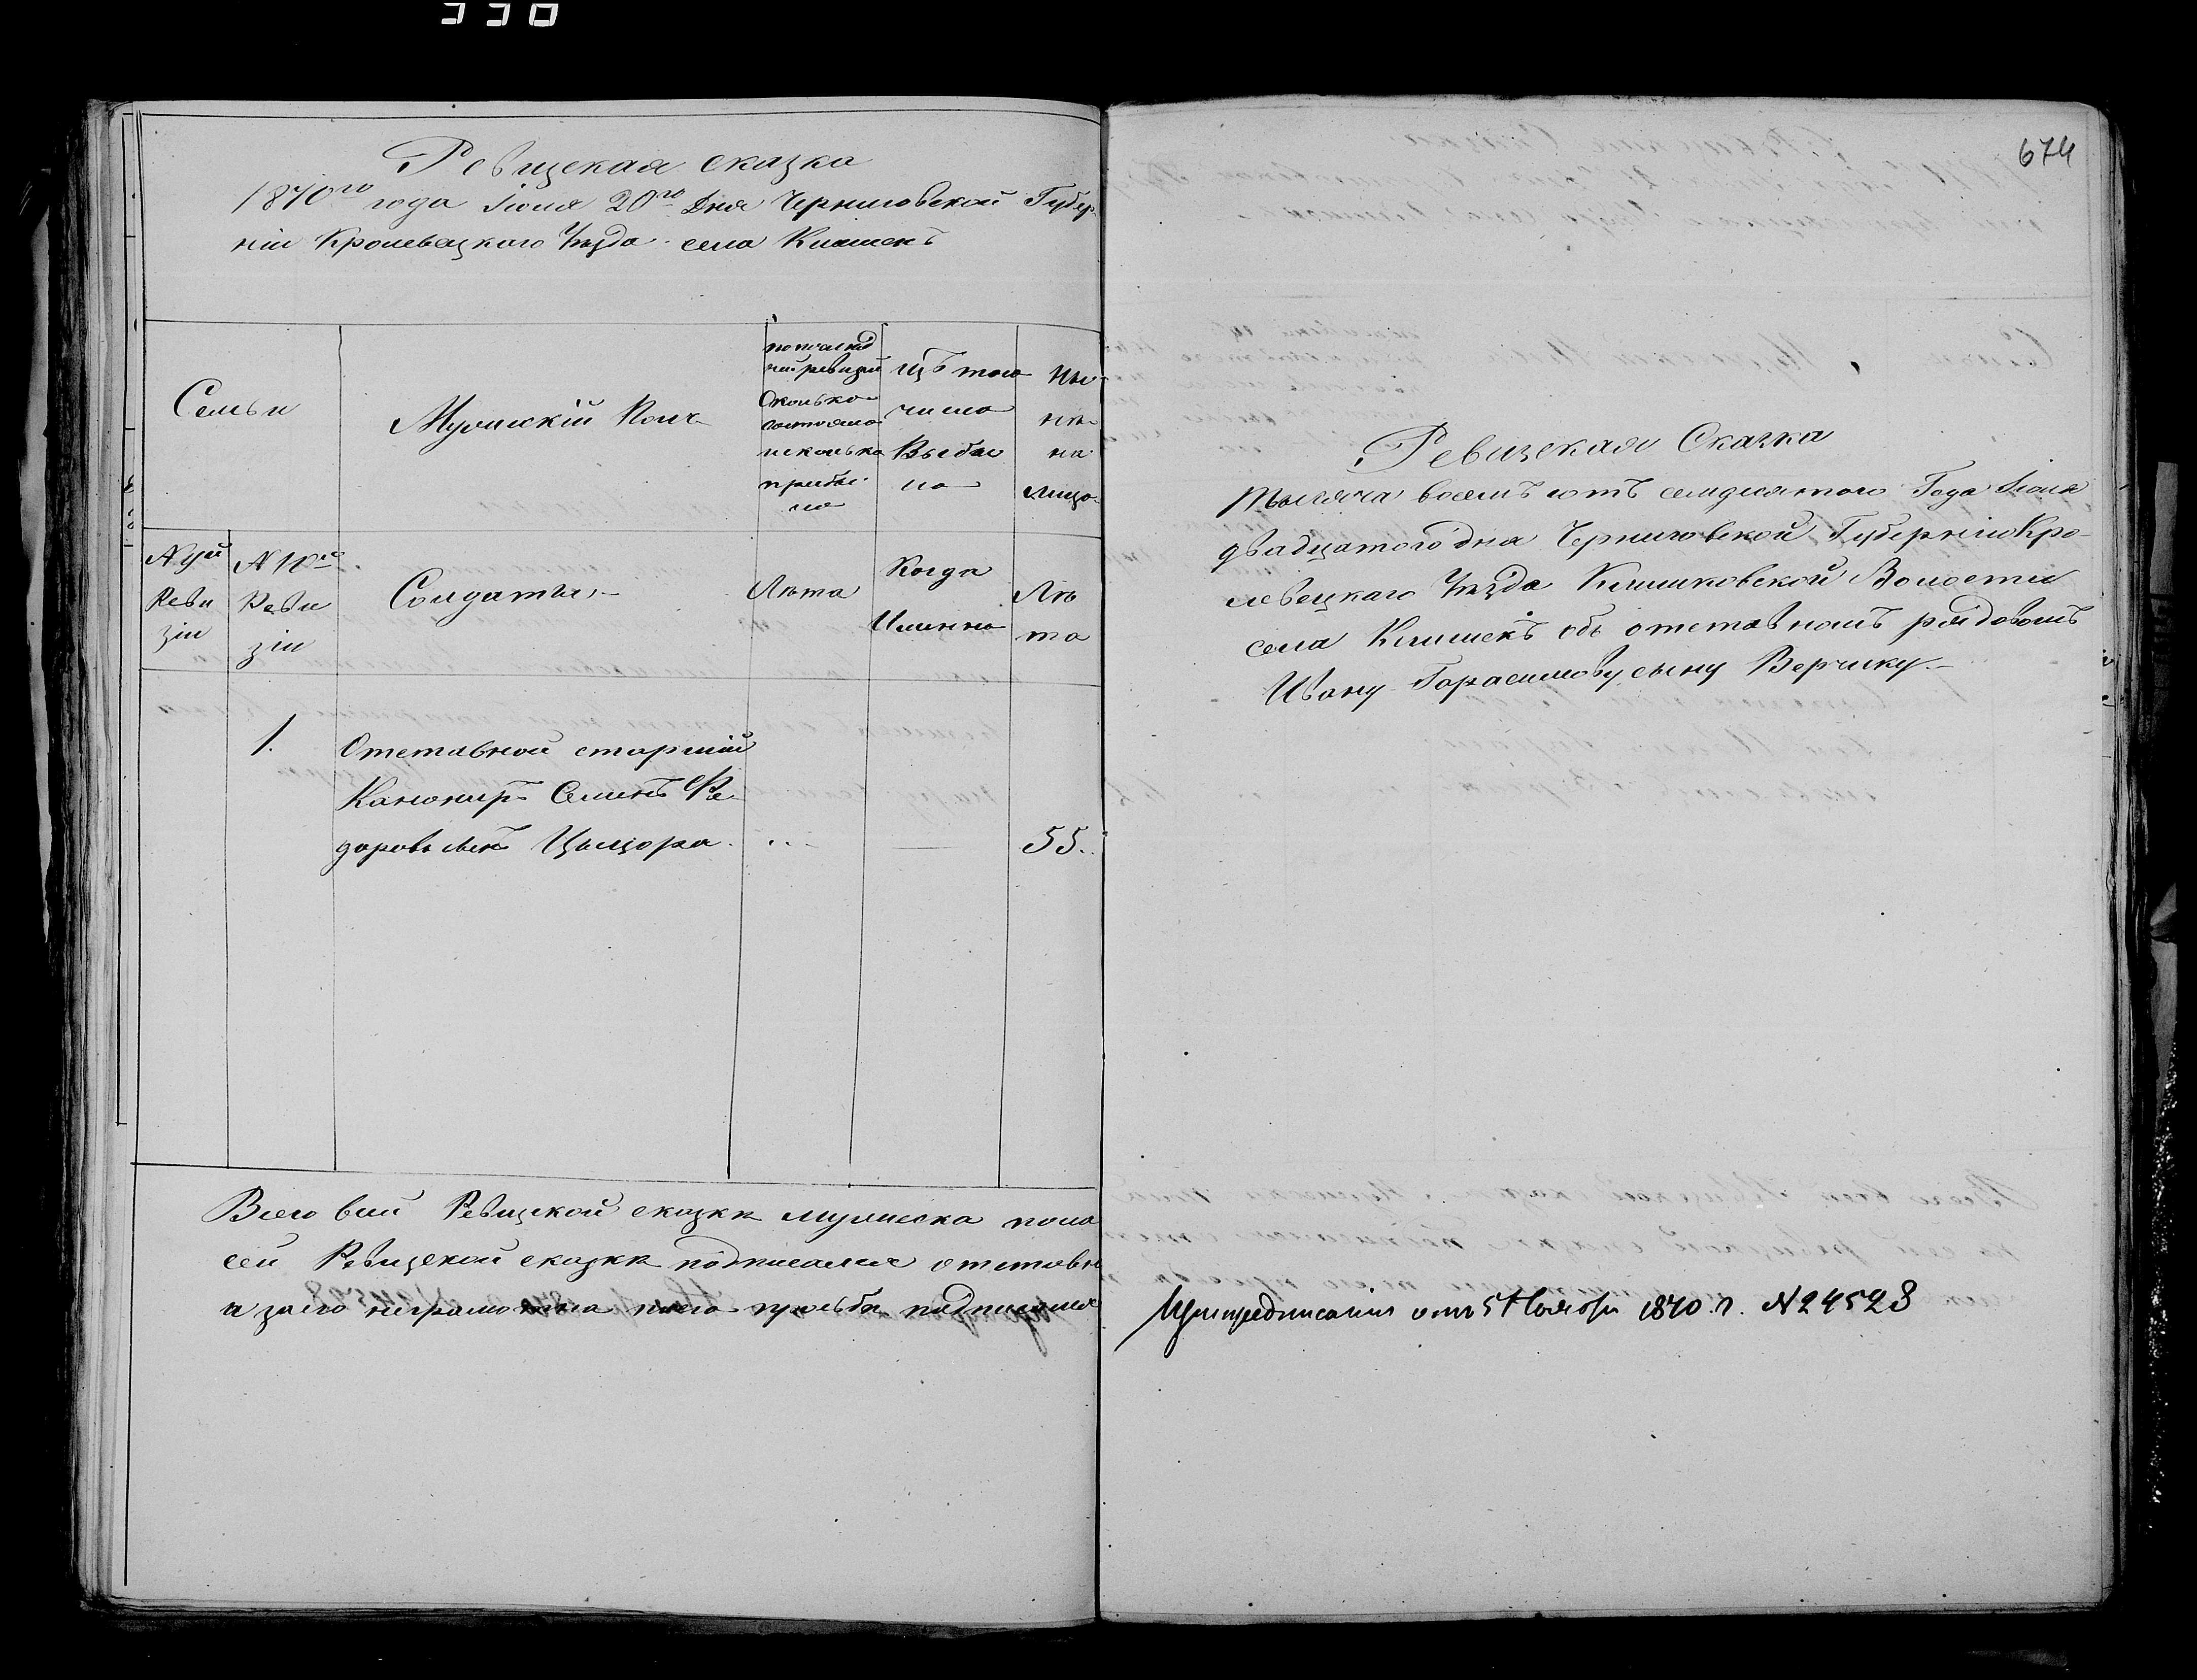 330
Ревизская сказка
1870го года Іюля 20го Дня Черниговской Губер
ніи Кролевецкого Уѣзда села Клишекъ
Семьи
Мужискій Полъ
по послѣд
ней ревизіи
Сколько
состояло
и сколько
прибы
ло
Изъ того
числа
Выбы
ло
Ны
нѣ
на
лицо
№ 9й
Реви
зіи
№ 10й
Реви
зіи
Солдаты
Лѣта
Когда
Именно
Лѣ
та
1.
Отставной старшій
Канониръ Семенъ Фе
доровъ сынъ Цыцора
55.
Всего в сей Ревизской сказкѣ мужиска пола
сей Ревизской сказкѣ подписался отставн
а за его неграмотна по его прозьбѣ подписался
674
Ревизская Сказка
Тысяча восемъ сотъ семдесятого Года Іюля
двадцатого дня Черниговской Губерніи Кро
левецкаго Уѣзда Клишковской Волости
села Клишекъ объ отставномъ рядовомъ
Ивану Гарасимову сыну Верчику
При предписаніи отъ 5 Ноября 1870 г. № 24528